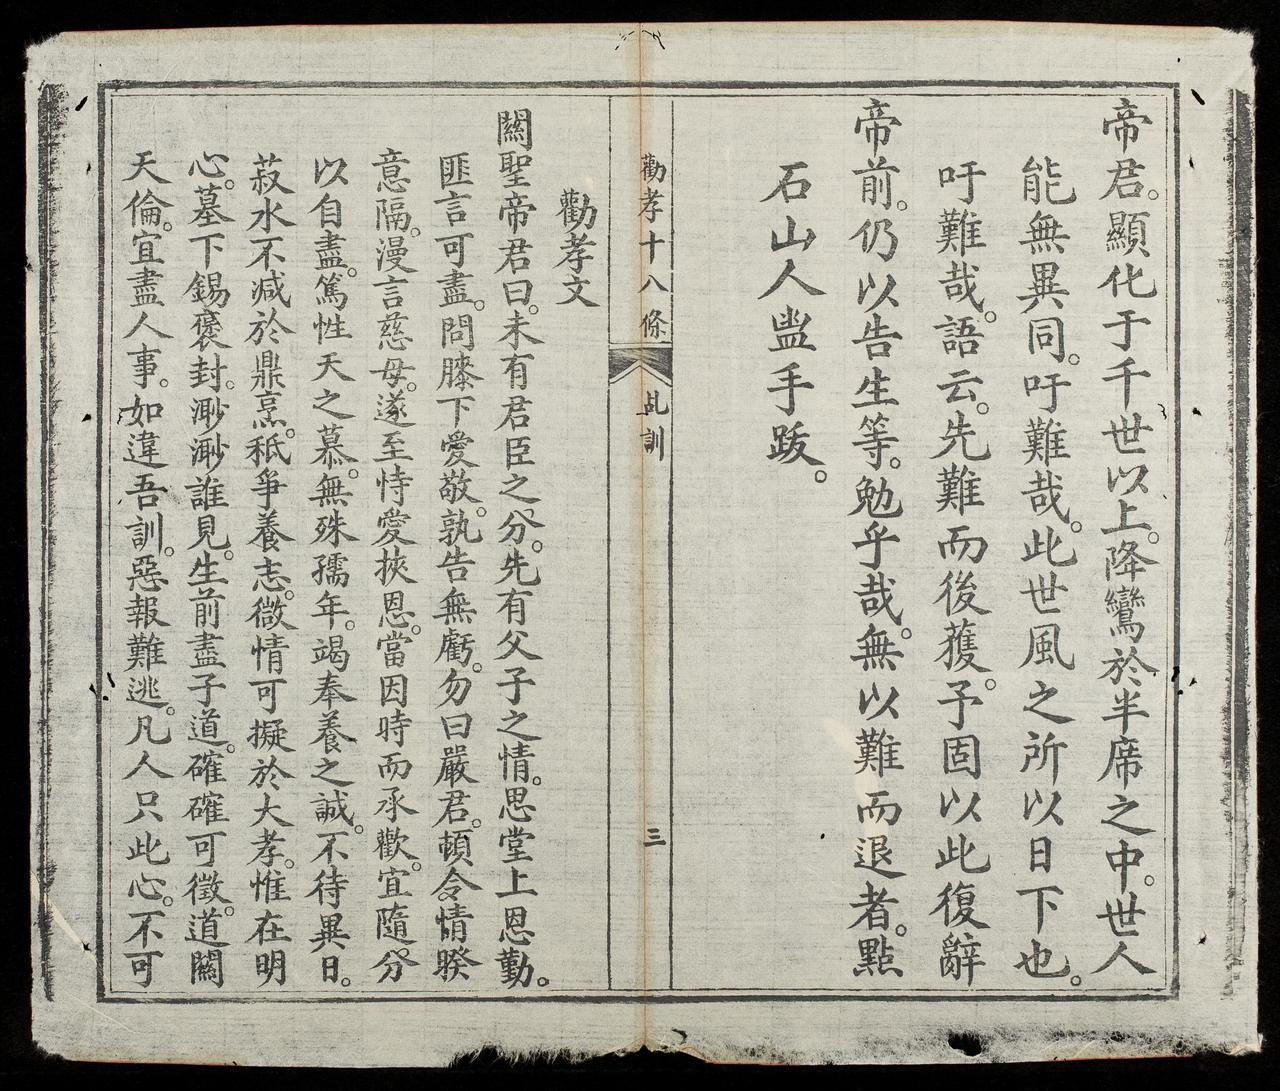 帝君。顯化于千世以上。降鸞於半席之中。世人
能無異同。吁難哉。此世風之所以日下也。
吁難哉。語云。先難而後獲。予固以此復辭
帝前。仍以告生等。勉乎哉。無以難而退者。點
石山人盥手跋。
勸孝十八條 乩訓 三
勸孝文
關聖帝君曰。未有君臣之分。先有父子之情。思堂上恩勤。
匪言可盡。問膝下愛敬。孰告無虧。勿曰嚴君。頓令情睽
意隔。漫言慈母。遂至恃愛挾恩。當因時而承歡。宜隨分
以自盡。篤性天之慕。無殊孺年。竭奉養之誠。不待異日。
菽水不減於鼎烹。秖爭養志。微情可擬於大孝。惟在明
心。墓下錫褒封。渺渺誰見。生前盡子道。確確可徵。道關
天倫。宜盡人事。如違吾訓。惡報難逃。凡人只此心。不可